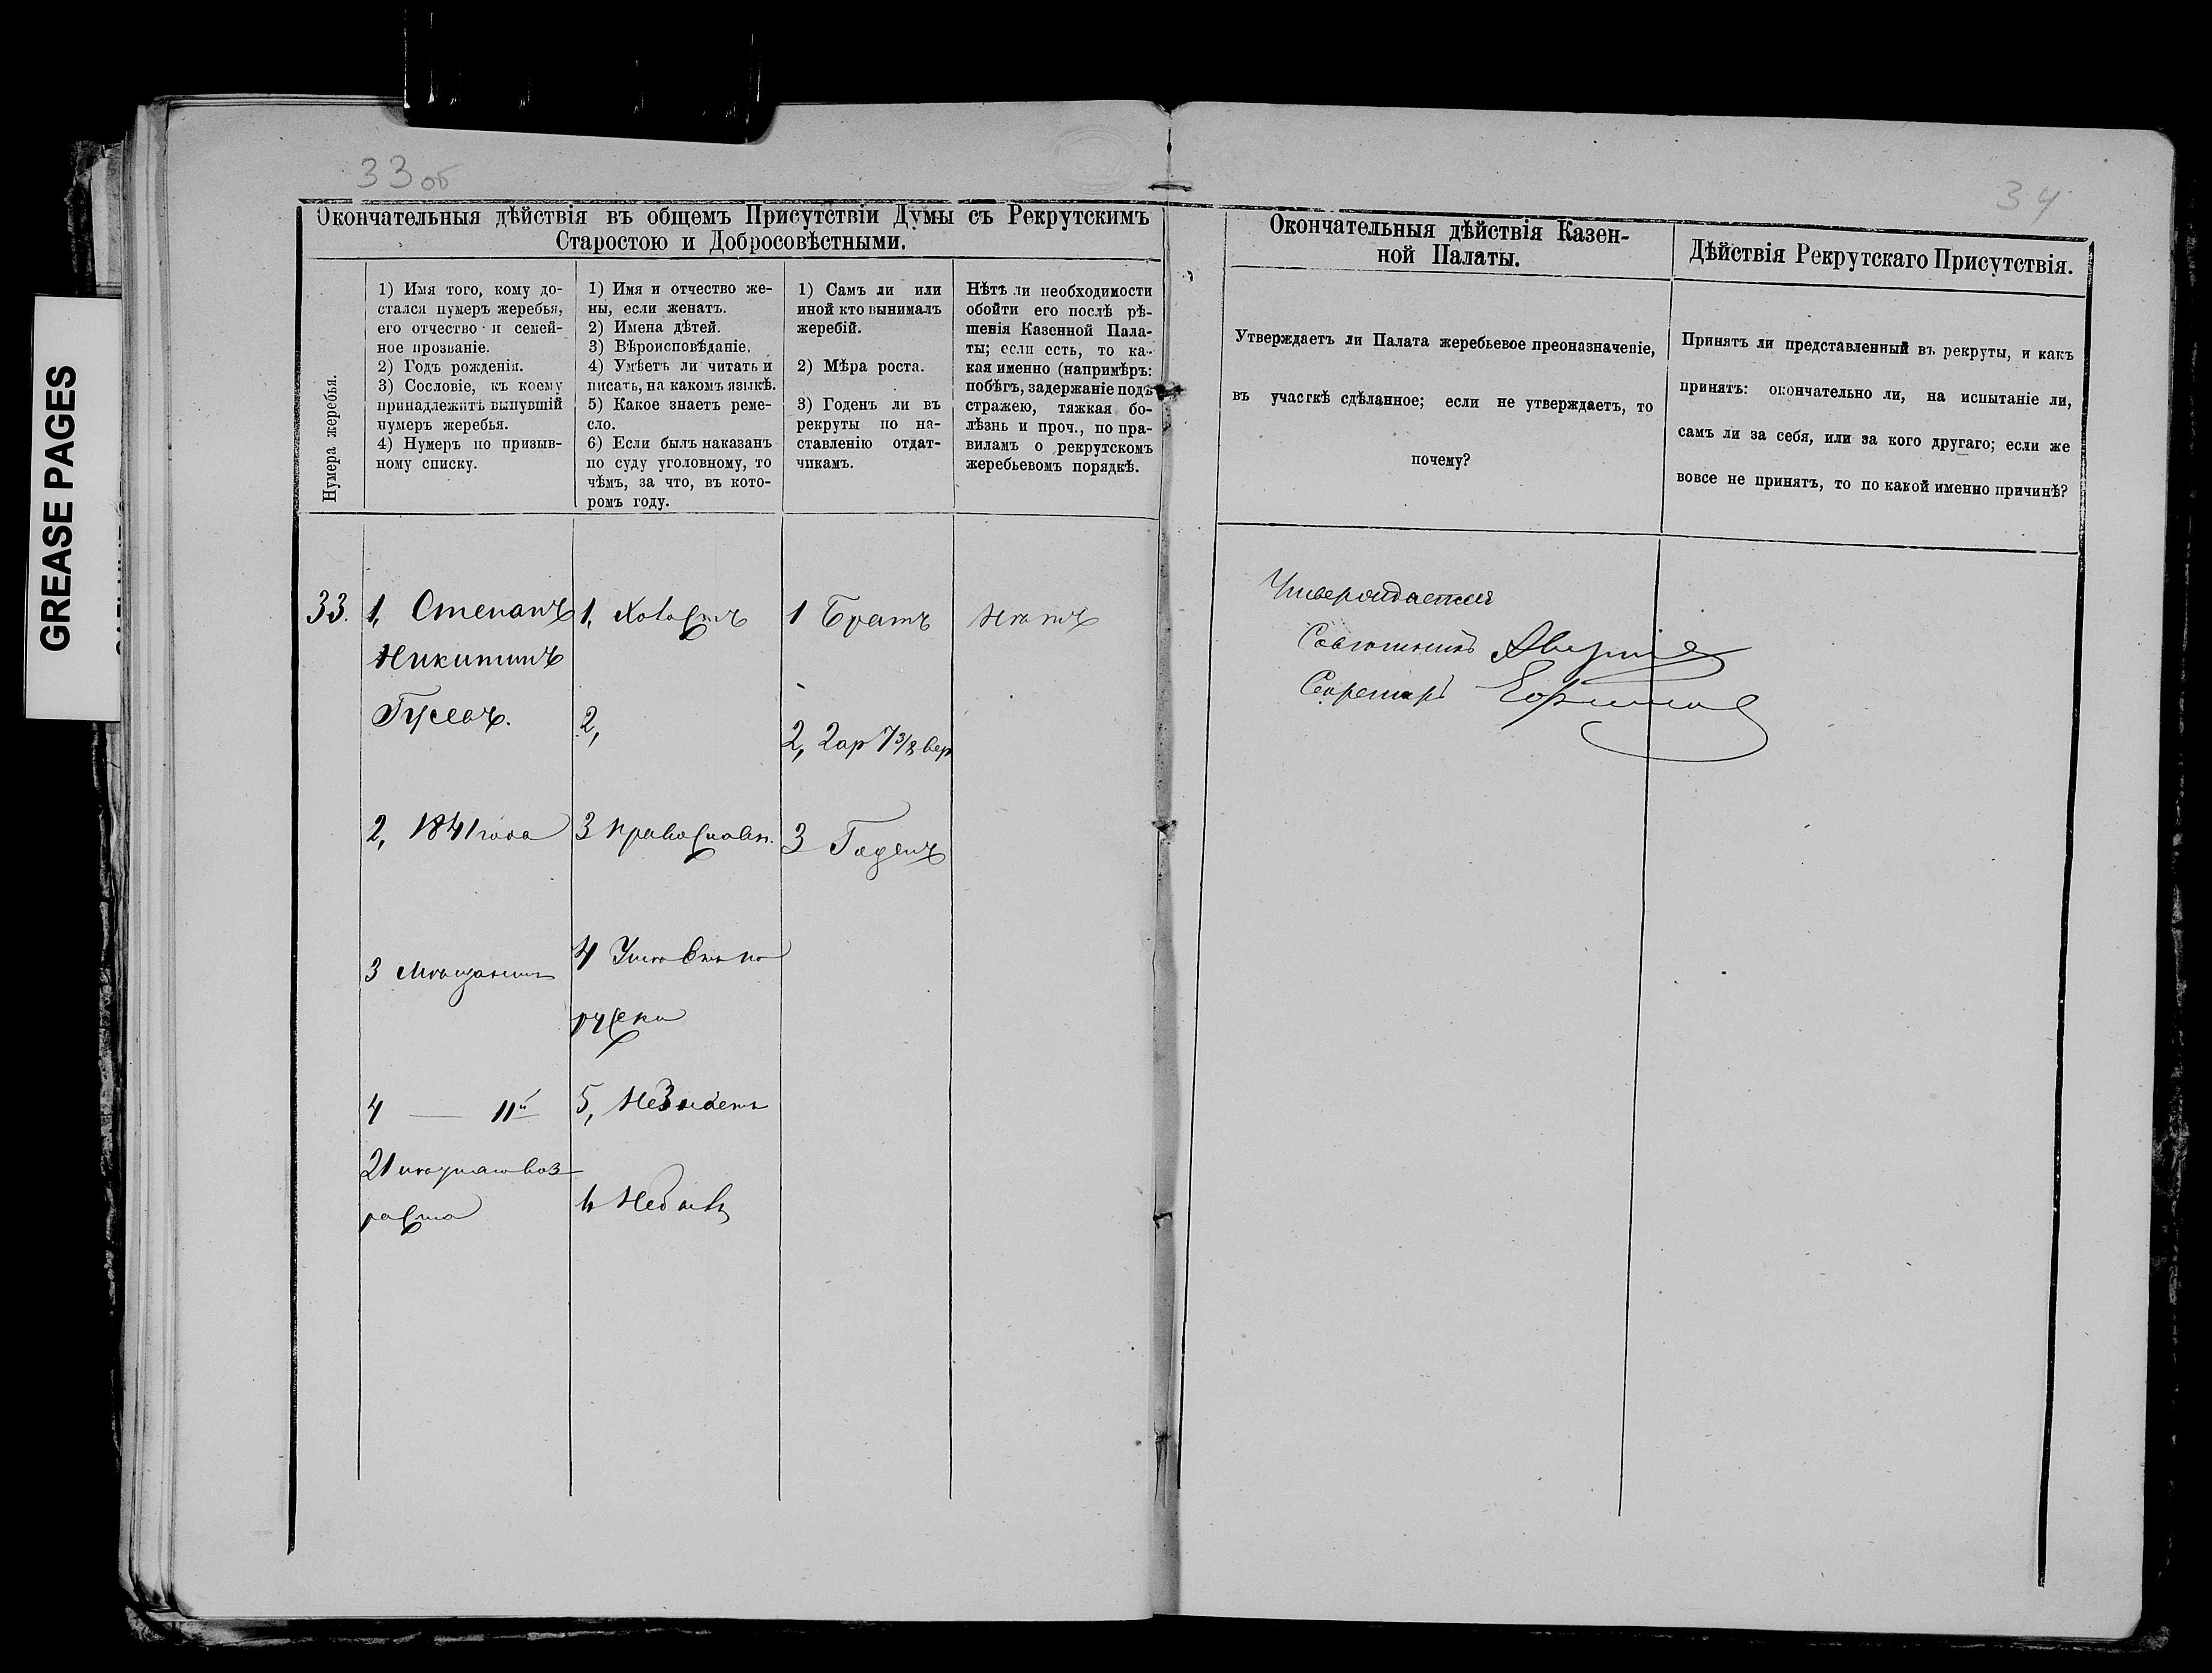 GREASE PAGES
33 об
34
Окончательныя дѣйствія въ общемъ Присутствіи Думы съ Рекрутскимъ
Старостою и Добросовѣстными.
Нумера жеребья.
1) Имя того, кому до-
стался нумеръ жеребья,
его отчество и семей-
ное прозваніе.
2) Годъ рожденія.
3) Сословіе, къ коему
принадлежитъ вынувшій
нумеръ жеребья.
4) Нумеръ по призыв-
ному списку.
1) Имя и отчество же-
ны, если женатъ.
2) Имена дѣтей.
3) Вѣроисповѣданіе.
4) Умѣетъ ли читать и
писать, на какомъ языкѣ.
5) Какое знаетъ реме-
сло.
6) Если былъ наказанъ
по суду уголовному, то
чѣмъ, за что, въ кото-
ромъ году.
1) Самъ ли или
иной кто вынималъ
жеребій.
2) Мѣра роста.
3) Годенъ ли въ
рекруты по на-
ставленію отдат-
чикамъ.
Нѣтъ ли необходимости
обойти его послѣ рѣ-
шенія Казенной Пала-
ты; если есть, то ка-
кая именно (напримѣръ:
побѣгъ, задержаніе подъ
стражею, тяжкая бо-
лѣзнь и проч., по пра-
виламъ о рекрутскомъ
жеребьевомъ порядкѣ.
Окончательныя дѣйствія Казен-
ной Палаты.
Утверждаетъ ли Палата жеребьевое преоназначеніе,
въ участкѣ сдѣланное; если не утверждаетъ, то
почему?
Дѣйствія Рекрутскаго Присутствія.
Принятъ ли представленный въ рекруты, и какъ
принятъ: окончательно ли, на испытаніе ли,
самъ ли за себя, или за кого другаго; если же
вовсе не принятъ, то по какой именно причинѣ?
33.
1, Степанъ
Никитинъ
Гусевъ.
2, 1841 года
3 Мѣщанинъ
4 — 11й
21 лѣтняго воз
раста
1, Холостъ
2,
3 православн.
4 Умѣетъ по
русски
5, Незнаетъ
6 Небылъ
1 Братъ
2, 2 ар 7 3/8 вер
3 Годенъ
Нѣтъ
Утверждается
Совѣтникъ
Секретарь